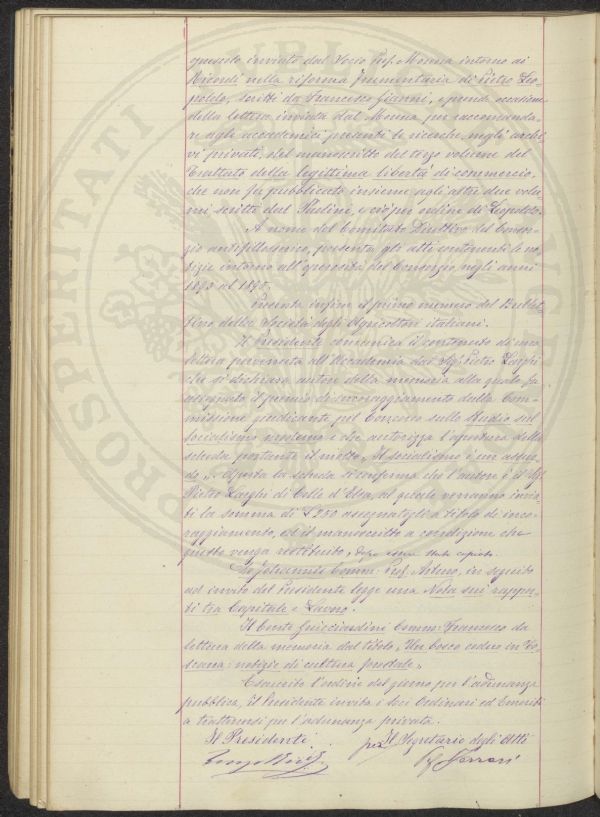 quesito inviato dal Socio Prof. Morena intorno ai
Ricordi nella riforma frumentaria di Pietro Leo-
poldo, scritti da Francesco Gianni, e prende occasione
della lettera inviata dal Morena per raccomanda-
re agli accademici presenti le ricerche, negli archi-
vi privati, del manoscritto del terzo volume del
Trattato della legittima libertà di commercio,
che non fu pubblicato insieme agli altri due volu-
mi scritti dal Paolini, e ciò per ordine di Leopoldo.
A nome del Comitato Direttivo del Consor-
zio antifillosserico, presenta gli atti contenenti le no-
tizie intorno all'operosità del Consorzio negli anni
al 1895.
Presenta infine il primo numero del Bullet-
tino della Società degli Agricoltori italiani.
Il Presidente comunica il contenuto di una
lettera pervenuta all'Accademia dal Sig. Pietro Larghi
che si dichiara autore della memoria alla quale fu
assegnato il premio di incoraggiamento dalla Com-
missione giudicante pel Concorso sullo studio sul
socialismo moderno e che autorizza l'apertura della
scheda portante il motto "Il socialismo è un assur-
do". Aperta la scheda si conferma che l'autore è il Sig.
Pietro Larghi di Colle d'Elsa, al quale verranno invia-
ti la somma di £ 250 assegnatagli a titolo di inco-
raggiamento, ed il manoscritto a condizione che
questo venga restituito, dopo esser stato copiato.
De Johannis Comm. Prof. Arturo, in seguito
ad invito del Presidente legge una Nota sui rappor-
ti tra Capitale e Lavoro.
Il Conte Guicciardini Comm. Francesco da
lettura della memoria dal titolo "Un bosco ceduo in To-
scana: notizie di cultura forestale."
Esaurito l'ordine del giorno per l'adunanza
pubblica, il Presidente invita i Soci Ordinari ed Emeriti
a trattenersi per l'adunanza privata.
Il Presidente per Il Segretario degli Atti